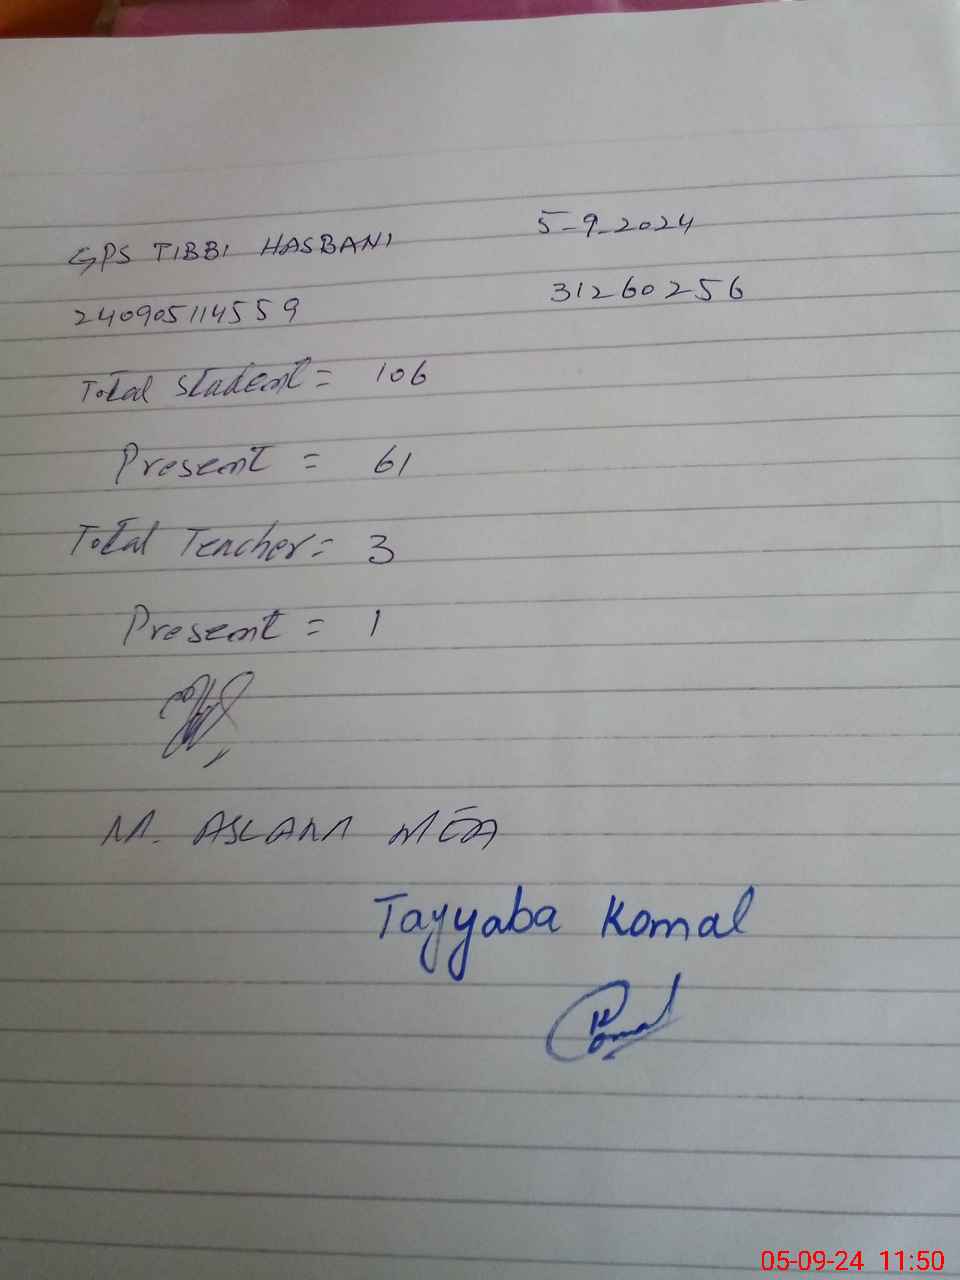 GPS TIBBI HASBANI 5-9-2024
240905114559 31260256
Total Student = 106
Present = 61
Total Teacher = 3
Present = 1
M. ASLAM MEA
Tayyaba Komal
Komal
05-09-24 11:50